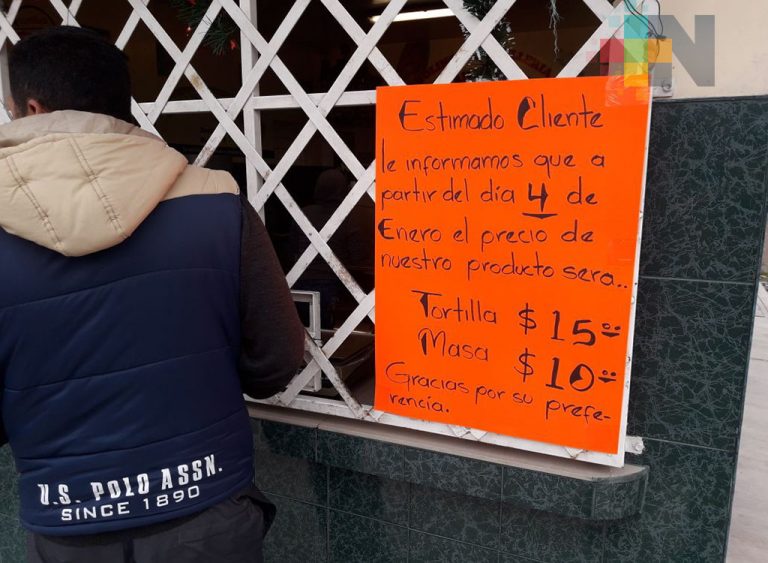 Estimado Cliente
le informamos que a
partir del día 4 de
Enero el precio de
nuestro producto sera...
Tortilla $15.00
Masa $10.00
Gracias por su prefe-
rencia.
U.S. POLO ASSN.
SINCE 1890
N